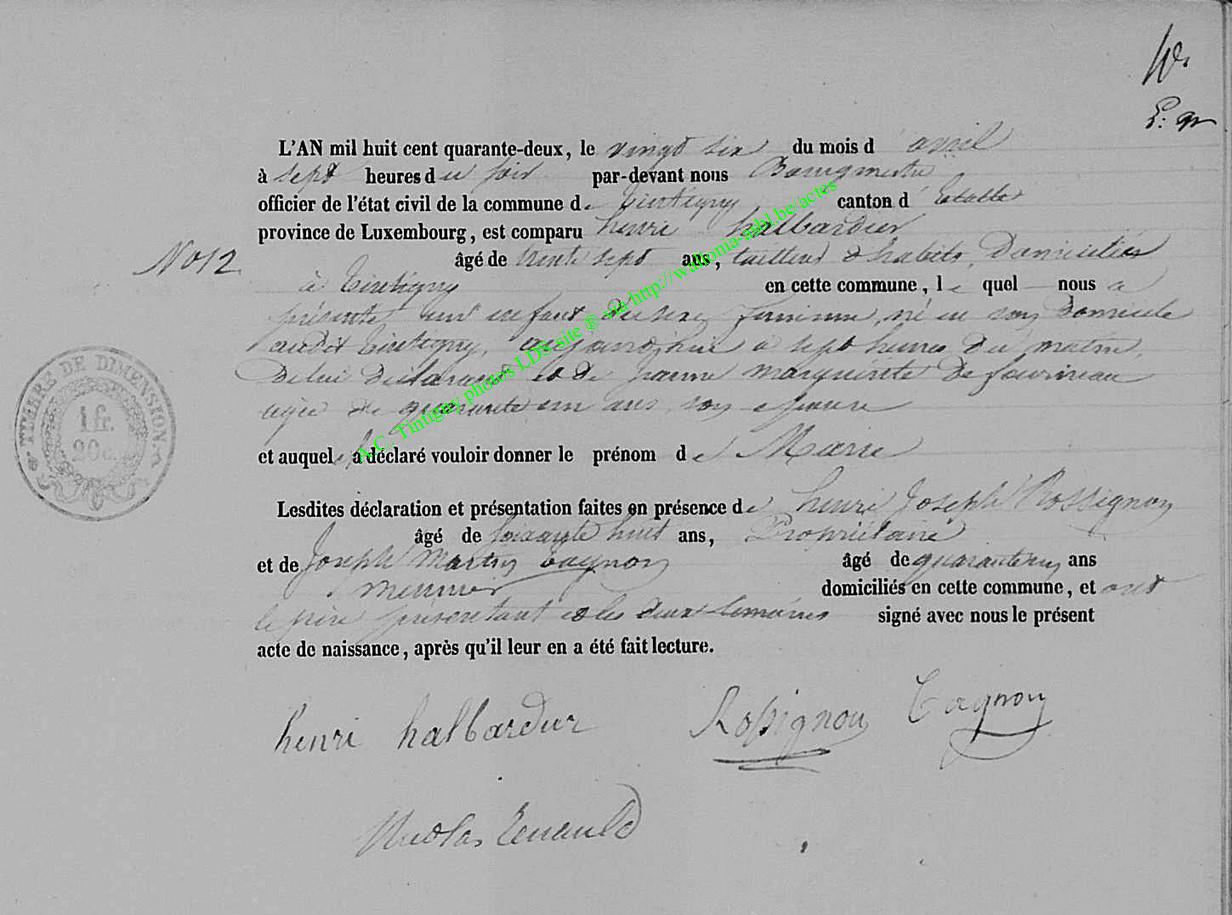 10.
L'AN mil huit cent quarante-deux, le vingt six du mois d'avril
à sept heures du soir par-devant nous Bourgmestre
officier de l'état civil de la commune de tintigny canton d'Etalle
province de Luxembourg, est comparu henri halbardier
No 12
âgé de trente sept ans, tailleur d habits, Domicilié
à tintigny en cette commune, le quel nous a
présenté un enfant du sexe feminin, né en son domicile
audit tintigny, aujourdhui a sept heures du matin,
de lui déclarant et de jeanne marguerite Defourneau
agée de quarante un ans, son epouse
et auquel il a déclaré vouloir donner le prénom de Marie
TIMBRE DE DIMENSION
1 fr.
20 c.
Lesdites déclaration et présentation faites en présence de henri Joseph Rossignon
âgé de soixante huit ans, Propriétaire
et de Joseph Martin tagnon âgé de quarante un ans
meunier domiciliés en cette commune, et ont
le père présentant et les deux témoins signé avec nous le présent
acte de naissance, après qu'il leur en a été fait lecture.
henri halbardier Rossignon Tagnon
Nicolas Renauld
A.C. Tintigny photos LDS site © via http://wallonia-asbl.be/actes